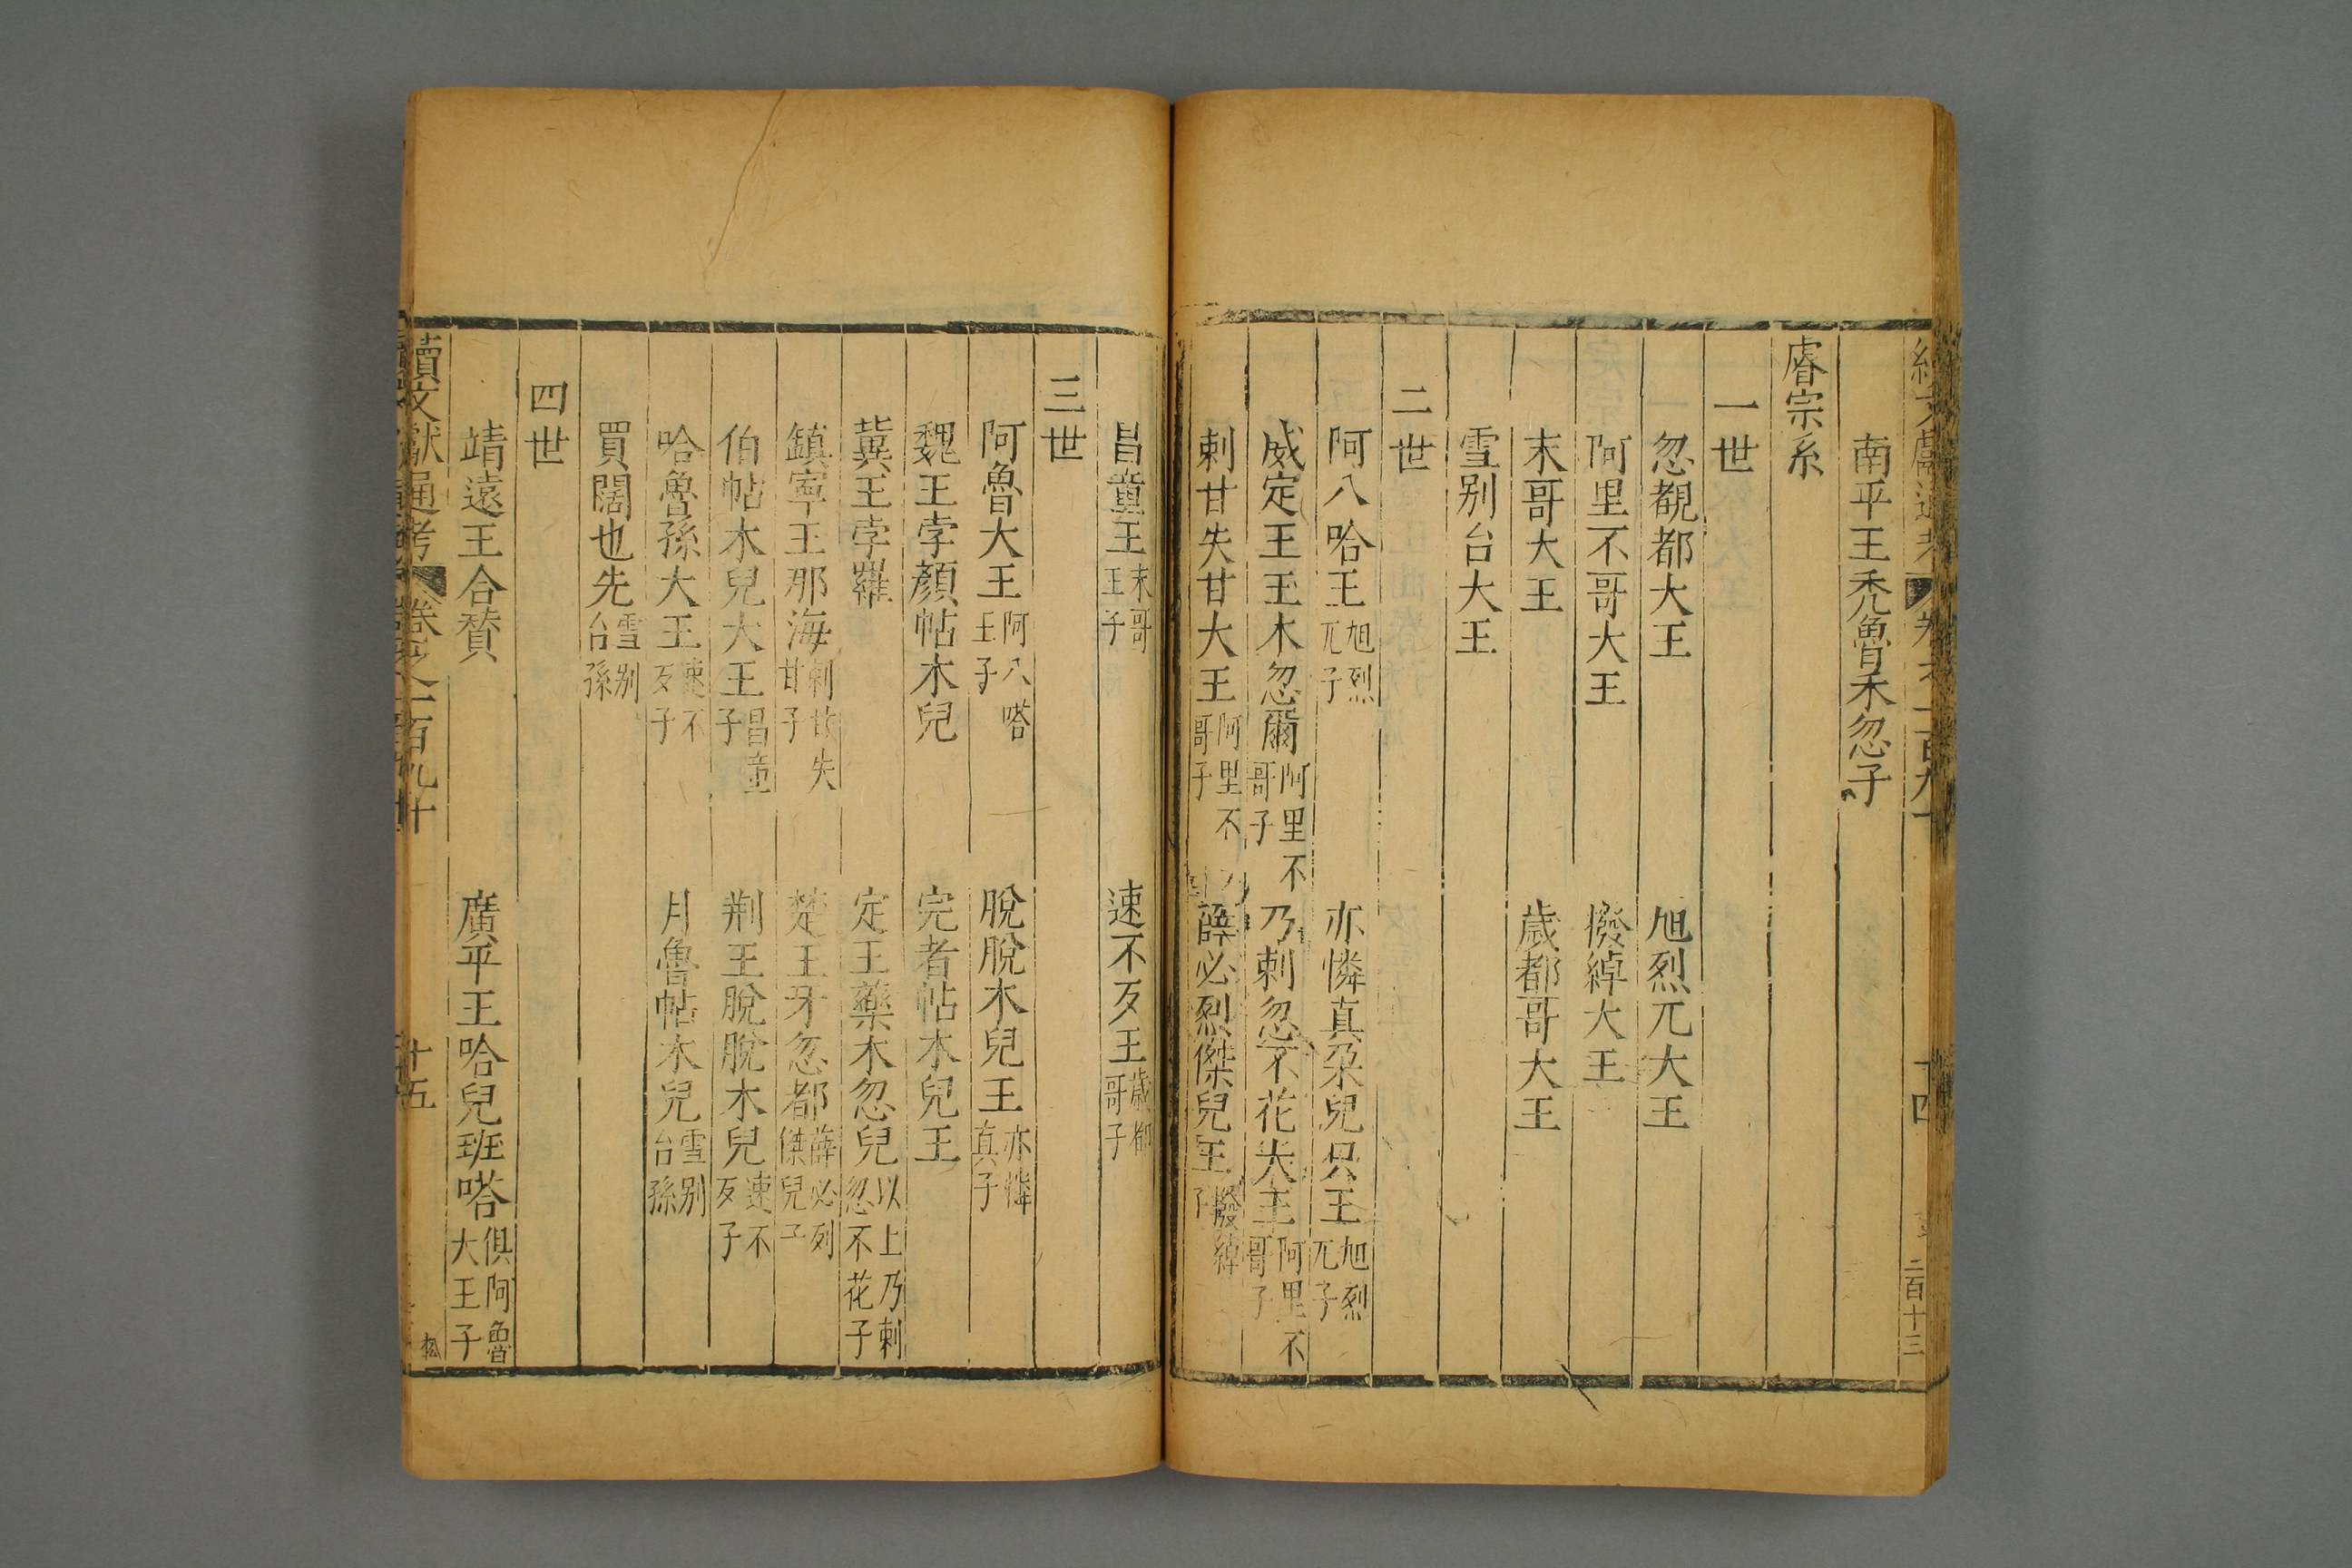 南平王禿魯禾忽子
睿宗系
一世
忽覩都大王 旭烈兀大王
阿里不哥大王 撥綽大王
末哥大王 歲都哥大王
雪别台大王
二世
阿八哈王旭烈兀子 亦憐真朶兒只王旭烈兀子
威定王玉木忽爾阿里不哥子 乃剌忽不花大王阿里不哥子
剌甘失甘大王阿里不哥子 薛必烈傑兒王撥綽子
昌童王末哥王子 速不歹王歲都哥子
三世
阿魯大王阿八嗒王子 脫脫木兒王亦憐真子
魏王孛顏帖木兒 完者帖木兒王
冀王孛羅 定王藥木忽兒以上乃剌忽不花子
鎮寧王那海剌甘失甘子 楚王牙忽都薛必列傑兒子
伯帖木兒大王昌童子 荆王脫脫木兒速不歹子
哈魯孫大王速不歹子 月魯帖木兒雪别台孫
買閭也先雪别台孫
四世
靖遠王合贊 廣平王哈兒班嗒俱阿魯大王子
續文獻通考 卷之一百九十 十五